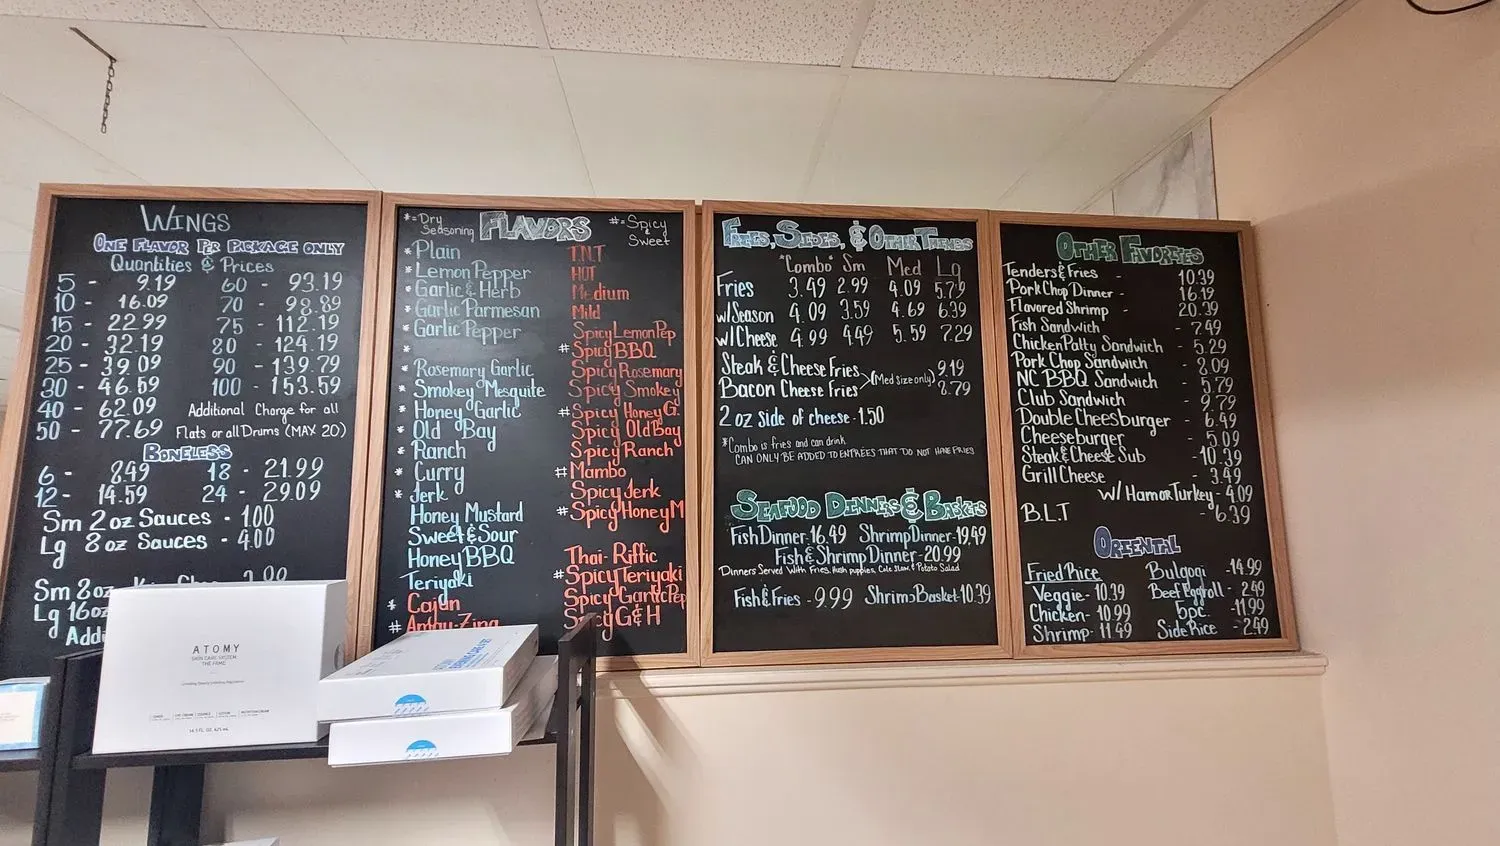 WINGS
ONE FLAVOR PER PACKAGE ONLY
Quantities & Prices
5 - 9.19 60 - 93.19
10 - 16.09 70 - 98.89
15 - 22.99 75 - 112.19
20 - 32.19 80 - 124.19
25 - 39.09 90 - 139.79
30 - 46.59 100 - 153.59
40 - 62.09 Additional Charge for all
50 - 77.69 Flats or all Drums (MAX 20)
BONELESS
6 - 8.49 18 - 21.99
12 - 14.59 24 - 29.09
Sm 2 oz Sauces - 1.00
Lg 8 oz Sauces - 4.00
Sm 8 oz
Lg 16 oz
*= Dry Seasoning FLAVORS #= Spicy & Sweet
* Plain T.N.T
* Lemon Pepper HOT
* Garlic & Herb Medium
* Garlic Parmesan Mild
* Garlic Pepper Spicy Lemon Pep
* # Spicy BBQ
* Rosemary Garlic Spicy Rosemary
* Smokey Mesquite Spicy Smokey
* Honey Garlic # Spicy Honey G.
* Old Bay Spicy Old Bay
* Ranch Spicy Ranch
* Curry # Mambo
* Jerk Spicy Jerk
Honey Mustard # Spicy Honey M
Sweet & Sour
Honey BBQ Thai-Riffic
Teriyaki # Spicy Teriyaki
* Cajun Spicy Garlic Pep
# Amay-Zing Spicy G & H
FRIES, SIDES, & OTHER THINGS
"Combo" Sm Med Lg
Fries 3.49 2.99 4.09 5.79
w/Season 4.09 3.59 4.69 6.39
w/Cheese 4.99 4.49 5.59 7.29
Steak & Cheese Fries 9.19
Bacon Cheese Fries (Med size only) 8.79
2 oz Side of cheese - 1.50
*Combo is fries and can drink
CAN ONLY BE ADDED TO ENTREES THAT DO NOT HAVE FRIES
SEAFOOD DINNERS & BASKETS
Fish Dinner - 16.49 Shrimp Dinner - 19.49
Fish & Shrimp Dinner - 20.99
Dinners Served With Fries, Hush puppies, Cole Slaw & Potato Salad
Fish & Fries - 9.99 Shrimp Basket - 10.39
OTHER FAVORITES
Tenders & Fries - 10.39
Pork Chop Dinner - 16.19
Flavored Shrimp - 20.39
Fish Sandwich - 7.49
Chicken Patty Sandwich - 5.29
Pork Chop Sandwich - 8.09
NC BBQ Sandwich - 5.79
Club Sandwich - 9.79
Double Cheesburger - 6.49
Cheeseburger - 5.09
Steak & Cheese Sub - 10.39
Grill Cheese - 3.49
w/ Ham or Turkey - 4.09
B.L.T - 6.39
ORIENTAL
Fried Rice Bulgogi - 14.99
Veggie - 10.39 Beef Eggroll - 2.49
Chicken - 10.99 5pc. - 11.99
Shrimp - 11.49 Side Rice - 2.49
ATOMY
SKIN CARE SYSTEM
THE FAME